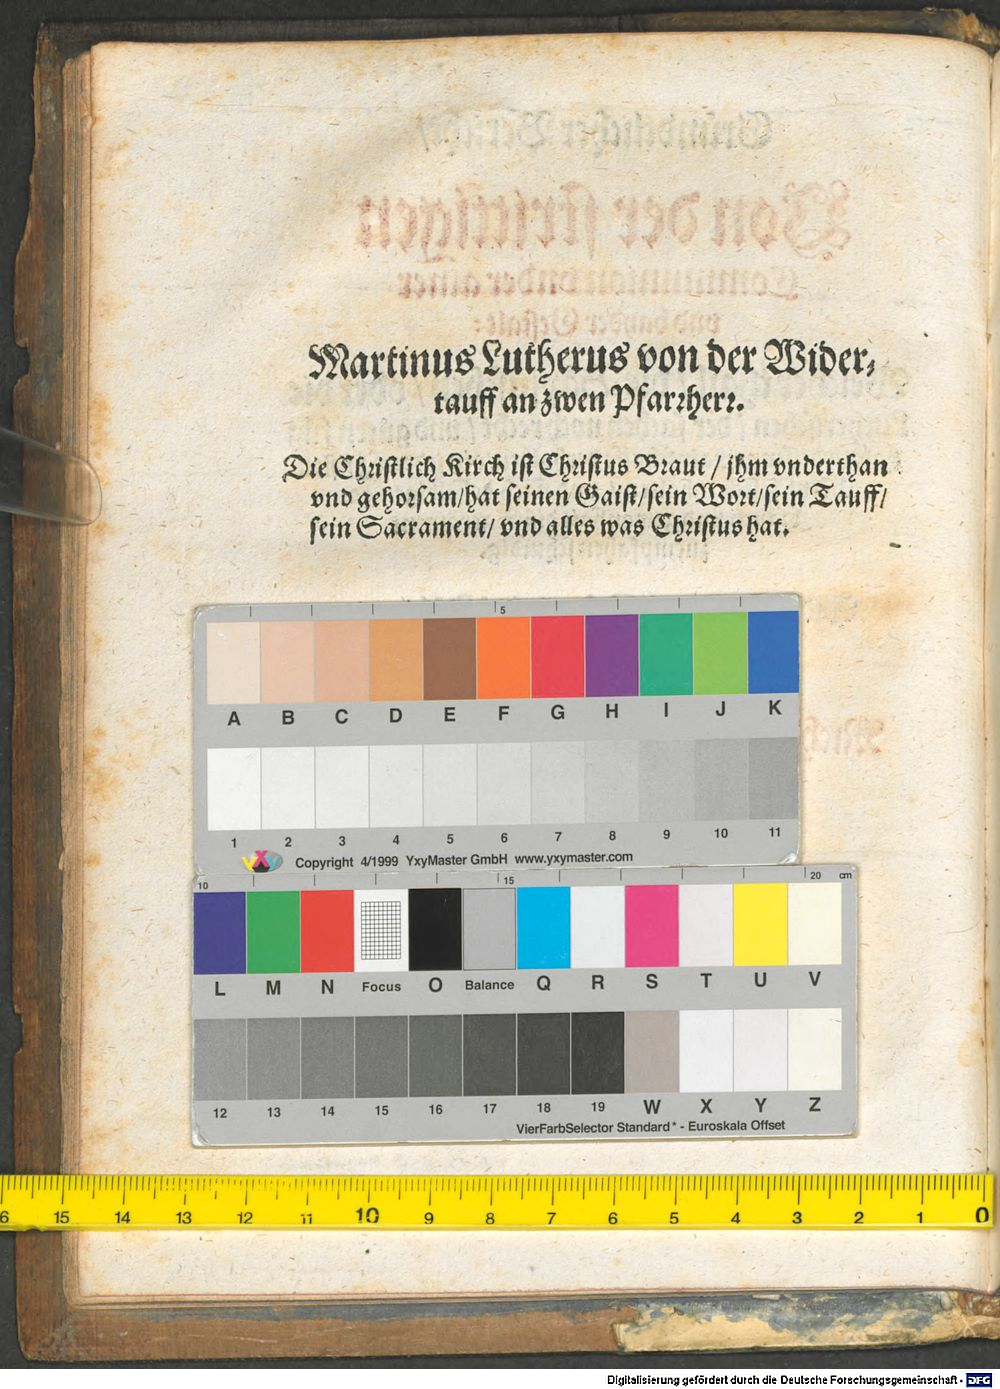 Martinus Lutherus von der Wider⸗
tauff an zwen Pfarꝛherꝛ.
Die Chꝛiſtlich Kirch iſt Chꝛiſtus Bꝛaut / jhm vnderthan
vnd gehoꝛſam/hat ſeinen Gaiſt/ſein Woꝛt/ſein Tauff/
ſein Sacrament/ vnd alles was Chꝛiſtus hat.
5
A B C D E F G H I J K
1 2 3 4 5 6 7 8 9 10 11
YXY Copyright 4/1999 YxyMaster GmbH www.yxymaster.com
10 15 20 cm
L M N Focus O Balance Q R S T U V
12 13 14 15 16 17 18 19 W X Y Z
VierFarbSelector Standard* - Euroskala Offset
6 15 14 13 12 11 10 9 8 7 6 5 4 3 2 1 0
Digitalisierung gefördert durch die Deutsche Forschungsgemeinschaft - DFG